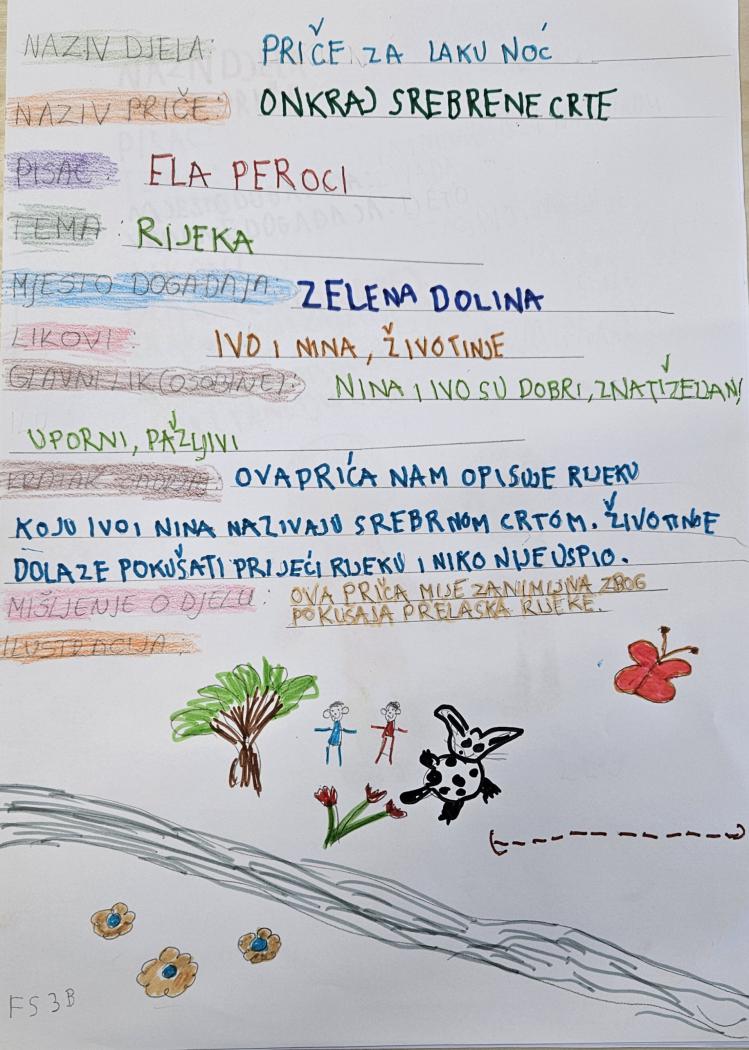 NAZIV DJELA: PRIČE ZA LAKU NOĆ
NAZIV PRIČE: ONKRAJ SREBRENE CRTE
PISAC ELA PEROCI
TEMA: RIJEKA
MJESTO DOGAĐAJA: ZELENA DOLINA
LIKOVI: IVO I NINA, ŽIVOTINJE
GLAVNI LIK (OSOBINE): NINA I IVO SU DOBRI, ZNATIŽELJNI,
UPORNI, PAŽLJIVI
KRATAK SADRŽAJ OVA PRIĆA NAM OPISUJE RIJEKU
KOJU IVO I NINA NAZIVAJU SREBRNOM CRTOM. ŽIVOTINJE
DOLAZE POKUŠATI PRIJEĆI RIJEKU I NIKO NIJE USPIO.
MIŠLJENJE O DJELU: OVA PRIČA MI JE ZANIMLJIVA ZBOG
POKUŠAJA PRELASKA RIJEKE.
ILUSTRACIJA:
FS 3B